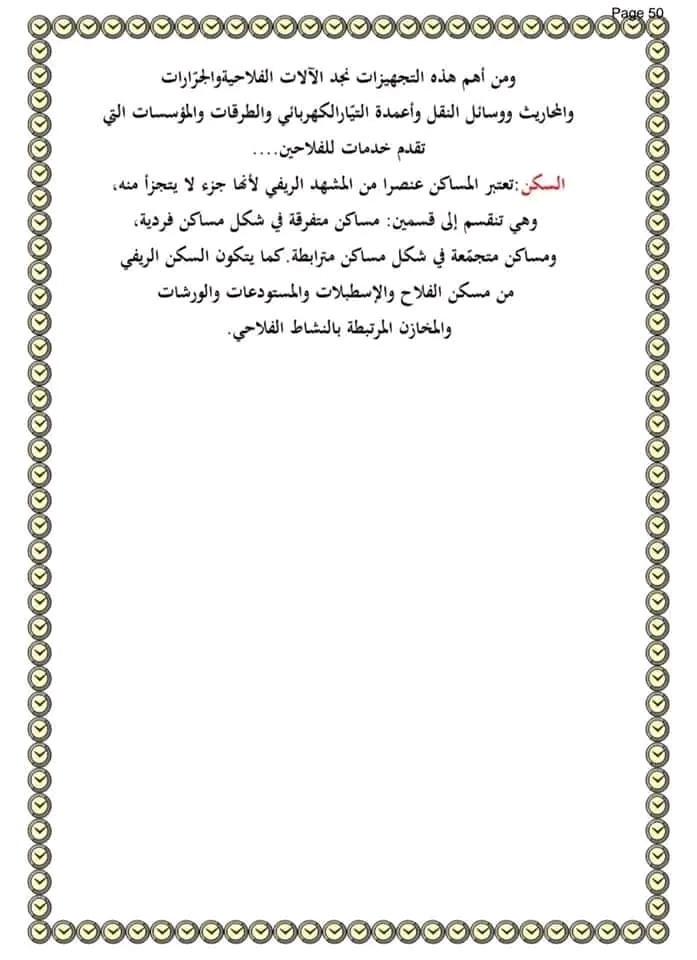 Page 50
ومن أهم هذه التجهيزات نجد الآلات الفلاحيةوالجرّارات
والمحاريث ووسائل النقل وأعمدة التيّارالكهربائي والطرقات والمؤسسات التي
تقدم خدمات للفلاحين....
السكن:تعتبر المساكن عنصرا من المشهد الريفي لأنها جزء لا يتجزأ منه،
وهي تنقسم إلى قسمين: مساكن متفرقة في شكل مساكن فردية،
ومساكن متجمّعة في شكل مساكن مترابطة.كما يتكون السكن الريفي
من مسكن الفلاح والإسطبلات والمستودعات والورشات
والمخازن المرتبطة بالنشاط الفلاحي.